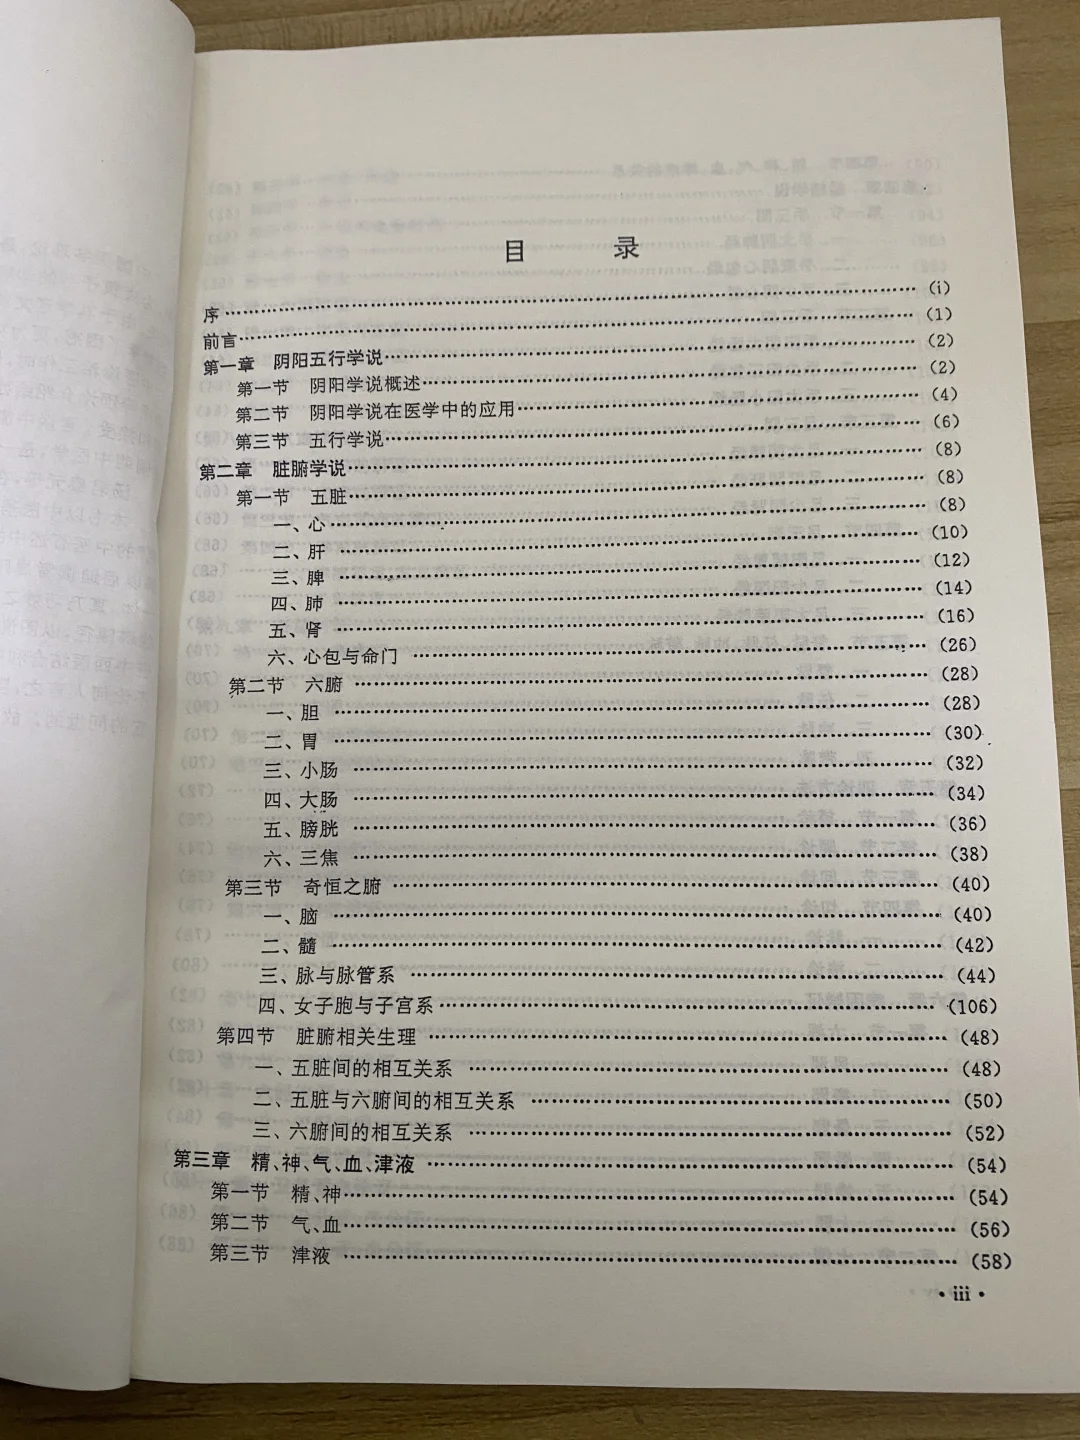 目 录
序……………………………………(i)
前言……………………………………(1)
第一章 阴阳五行学说……………………………………(2)
第一节 阴阳学说概述……………………………………(2)
第二节 阴阳学说在医学中的应用……………………………………(4)
第三节 五行学说……………………………………(6)
第二章 脏腑学说……………………………………(8)
第一节 五脏……………………………………(8)
一、心……………………………………(8)
二、肝……………………………………(10)
三、脾……………………………………(12)
四、肺……………………………………(14)
五、肾……………………………………(16)
六、心包与命门……………………………………(26)
第二节 六腑……………………………………(28)
一、胆……………………………………(28)
二、胃……………………………………(30)
三、小肠……………………………………(32)
四、大肠……………………………………(34)
五、膀胱……………………………………(36)
六、三焦……………………………………(38)
第三节 奇恒之腑……………………………………(40)
一、脑……………………………………(40)
二、髓……………………………………(42)
三、脉与脉管系……………………………………(44)
四、女子胞与子宫系……………………………………(106)
第四节 脏腑相关生理……………………………………(48)
一、五脏间的相互关系……………………………………(48)
二、五脏与六腑间的相互关系……………………………………(50)
三、六腑间的相互关系……………………………………(52)
第三章 精、神、气、血、津液……………………………………(54)
第一节 精、神……………………………………(54)
第二节 气、血……………………………………(56)
第三节 津液……………………………………(58)
· iii ·